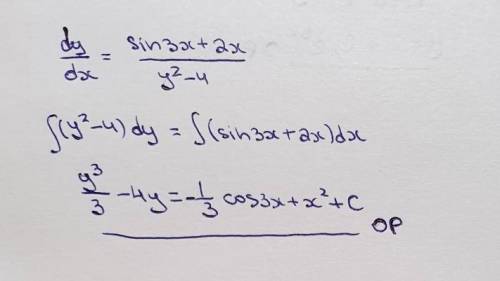 dy/dx = (sin3x+2x)/(y²-4)
∫(y²-4)dy = ∫(sin3x+2x)dx
y³/3 -4y = -1/3 cos3x + x² + C
OP